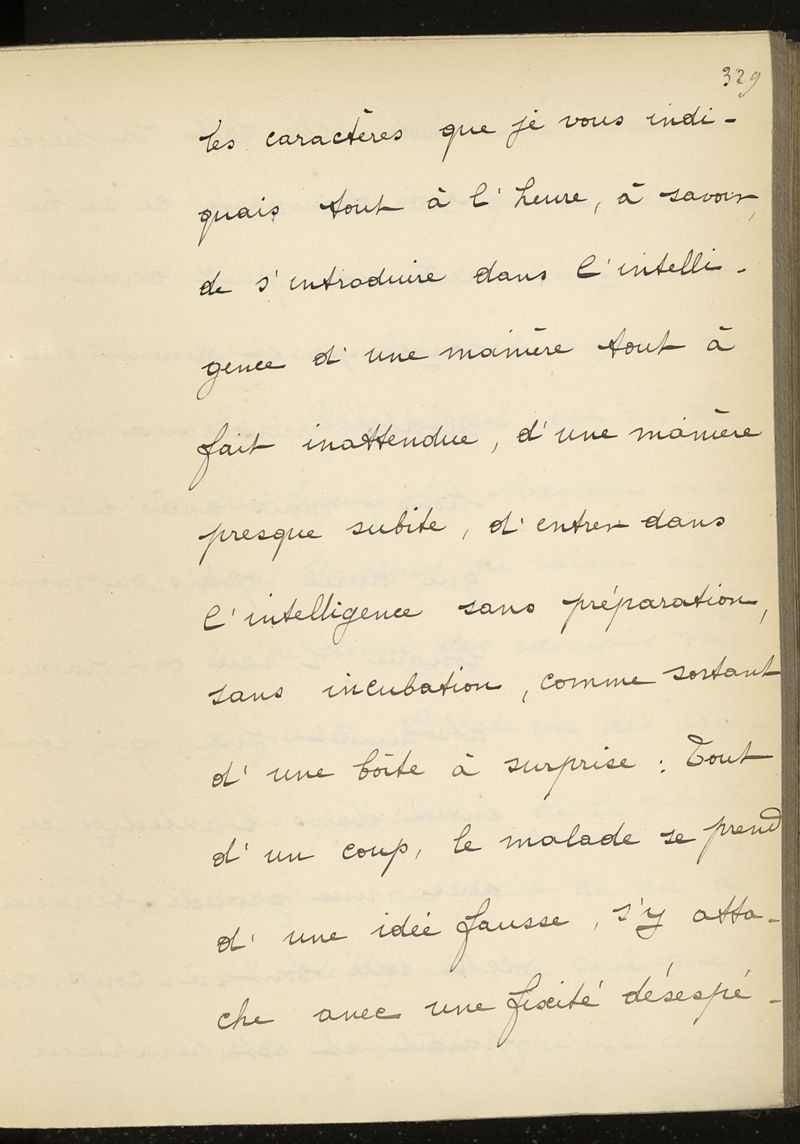 329
les caractères que je vous indi-
quais tout à l'heure, à savoir,
de s'introduire dans l'intelli-
gence d'une manière tout à
fait inattendue, d'une manière
presque subite, d'entrer dans
l'intelligence sans préparation,
sans incubation, comme sortant
d'une boîte à surprise : Tout
d'un coup, le malade se prend
d'une idée fausse, s'y atta-
che avec une fixité désespé-